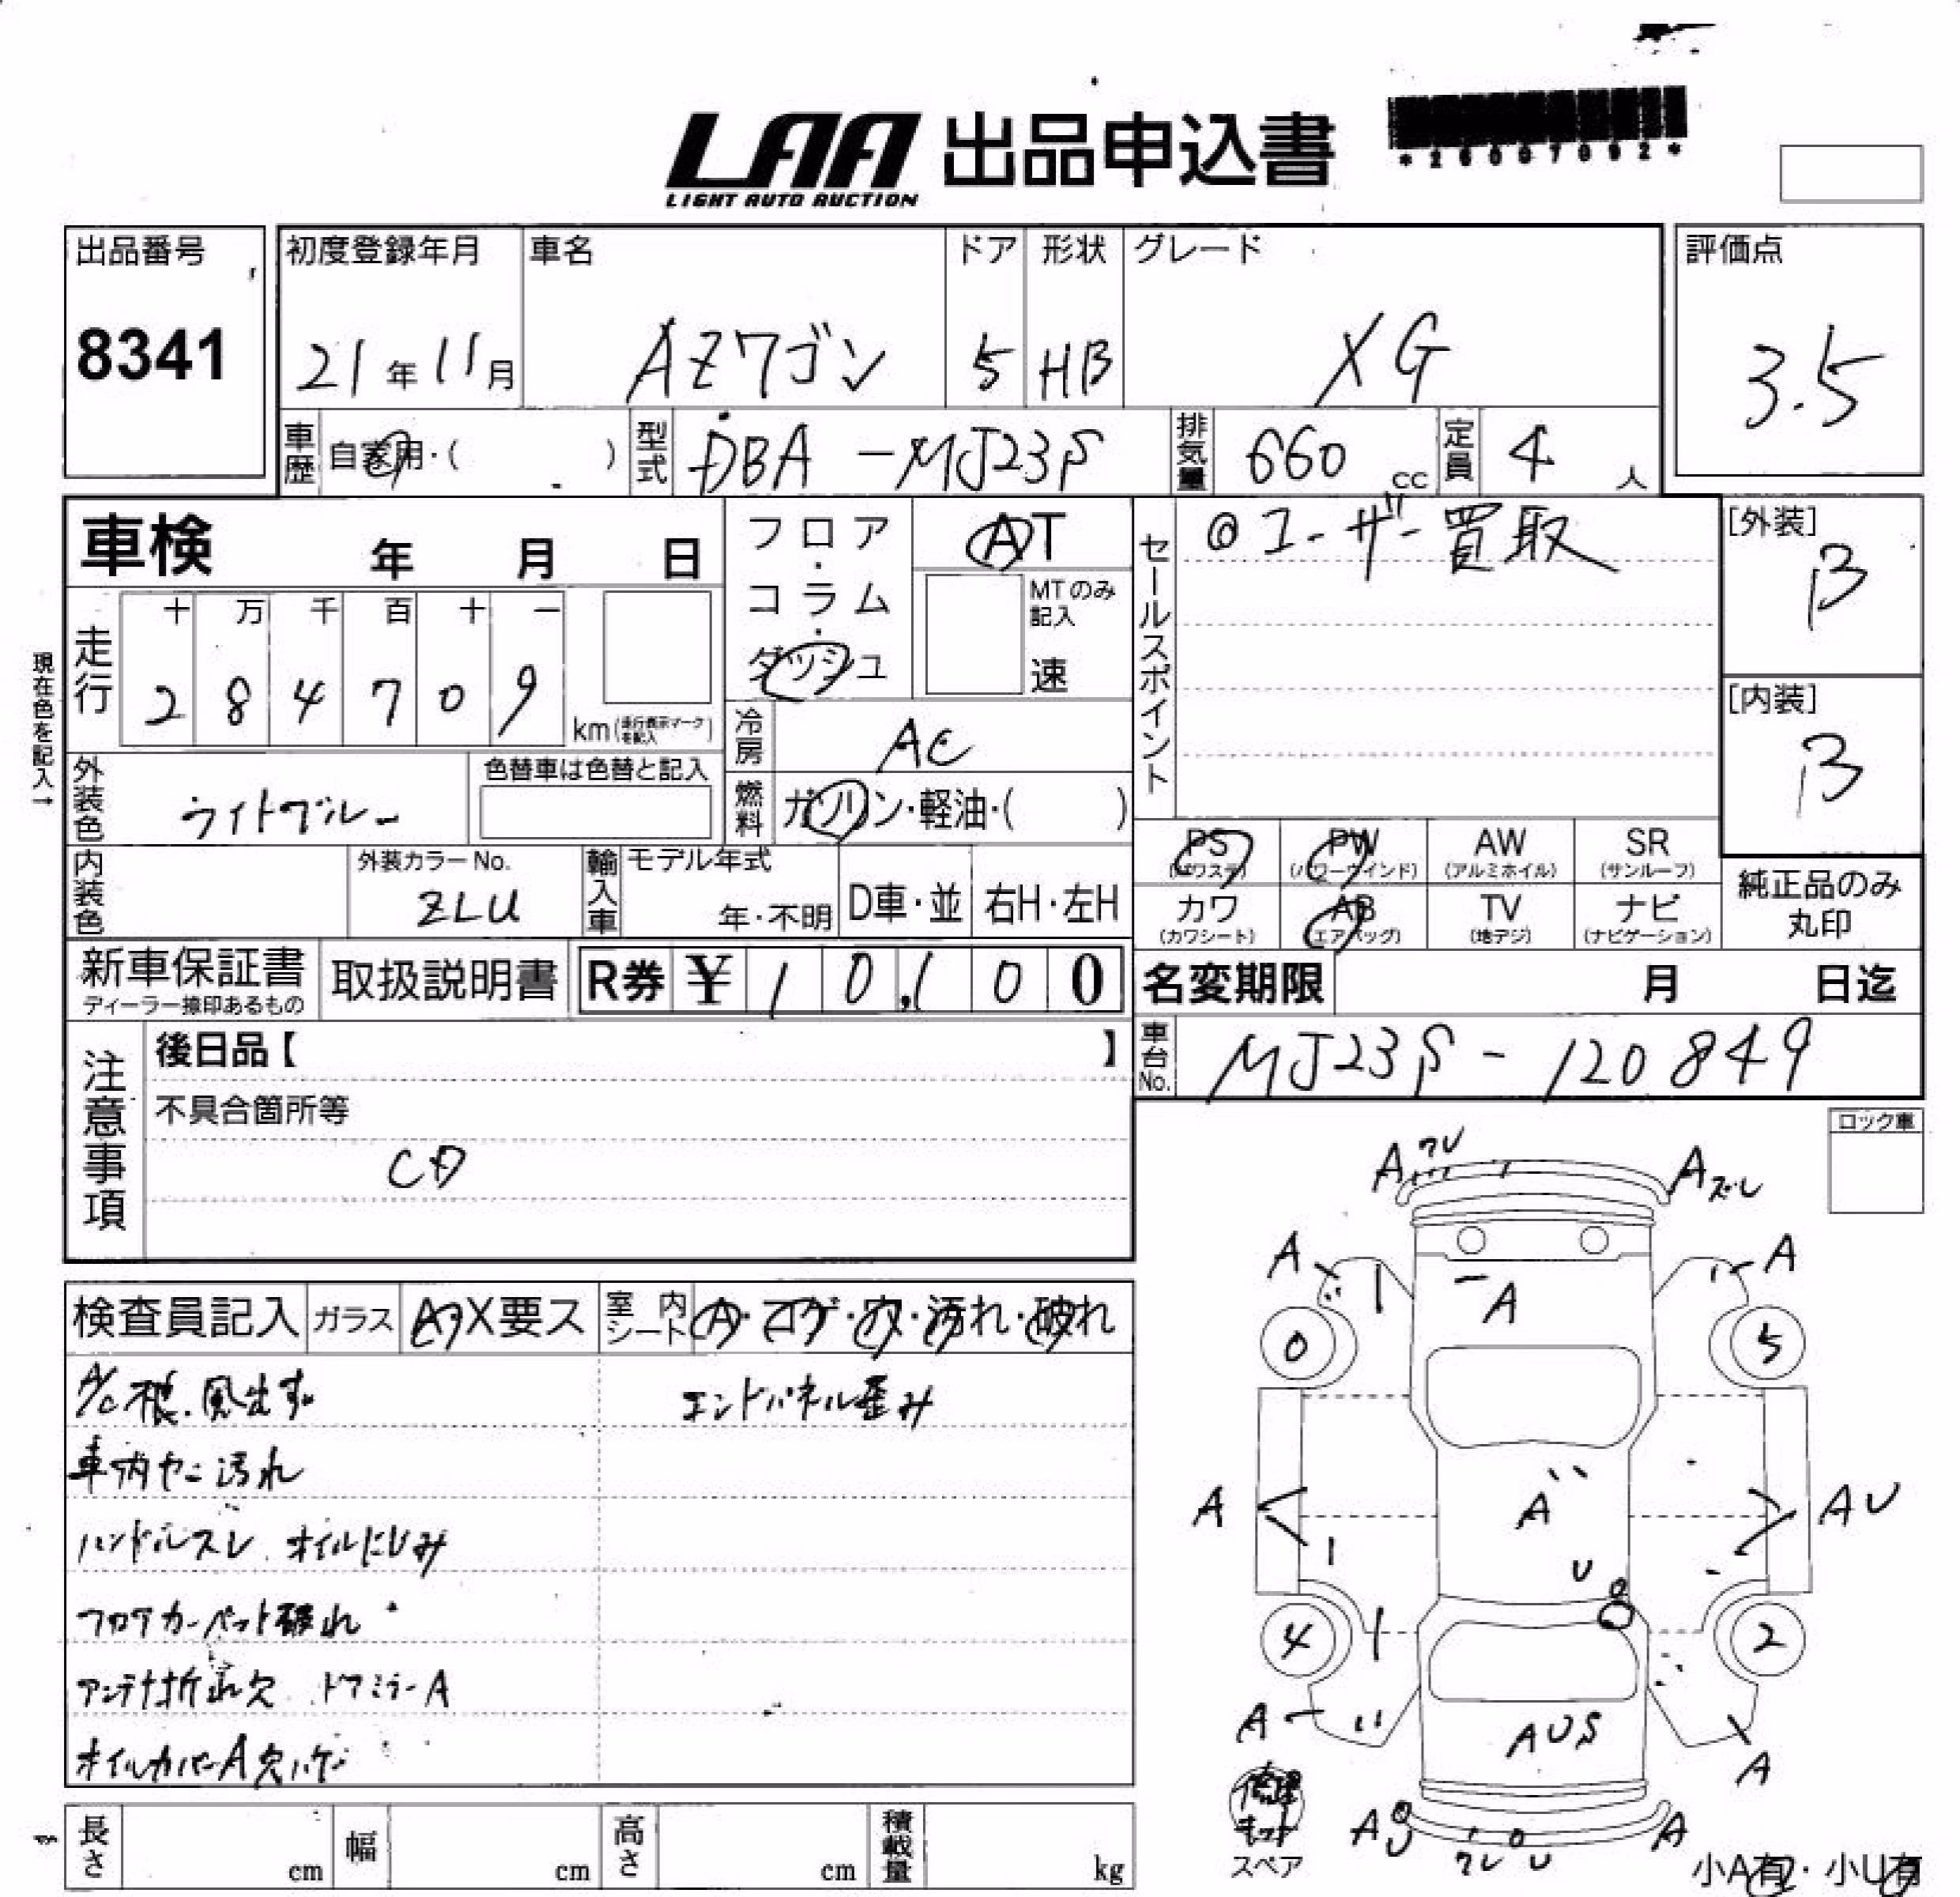 LAA 出品申込書
LIGHT AUTO AUCTION
*26007092*
出品番号
8341
初度登録年月
21年11月
車名
AZワゴン
ドア
5
形状
HB
グレード
XG
評価点
3.5
車歴 自家用・( )
型式 DBA-MJ23S
排気量 660 cc
定員 4 人
車検 年 月 日
フロア・コラム・ダッシュ
AT
MTのみ記入
速
セールスポイント
◎ユーザー買取
[外装]
B
[内装]
B
現在色を記入→
走行
十 万 千 百 十 一
2 8 4 7 0 9
km(走行表示マークを記入)
冷房 AC
外装色 ライトブルー
色替車は色替と記入
燃料 ガソリン・軽油・( )
内装色
外装カラーNo.
ZLU
輸入車
モデル年式
年・不明
D車・並
右H・左H
PS (パワステ)
PW (パワーウインド)
AW (アルミホイル)
SR (サンルーフ)
カワ (カワシート)
AB (エアバッグ)
TV (地デジ)
ナビ (ナビゲーション)
純正品のみ
丸印
新車保証書
ディーラー捺印あるもの
取扱説明書
R券 ¥ 10,100
名変期限 月 日迄
車台No. MJ23S-120849
注意事項
後日品【 】
不具合箇所等
CD
ロック車
検査員記入
ガラス A・X要ス
室内シート A・コゲ・穴・汚れ・破れ
A/C不良.風出ず
エンドパネル歪み
車内ヤニ汚れ
ハンドルスレ オイルにじみ
フロアカーペット破れ
アンテナ折れ欠 ドアミラーA
オイルカバーA欠ハゲ
A ワレ
A ズレ
A
A
A
0
5
A
A
AU
U
4
2
A
AUS
A
修理キット
スペア
A
A
ワレ U
小A有・小U有
長さ cm
幅 cm
高さ cm
積載量 kg